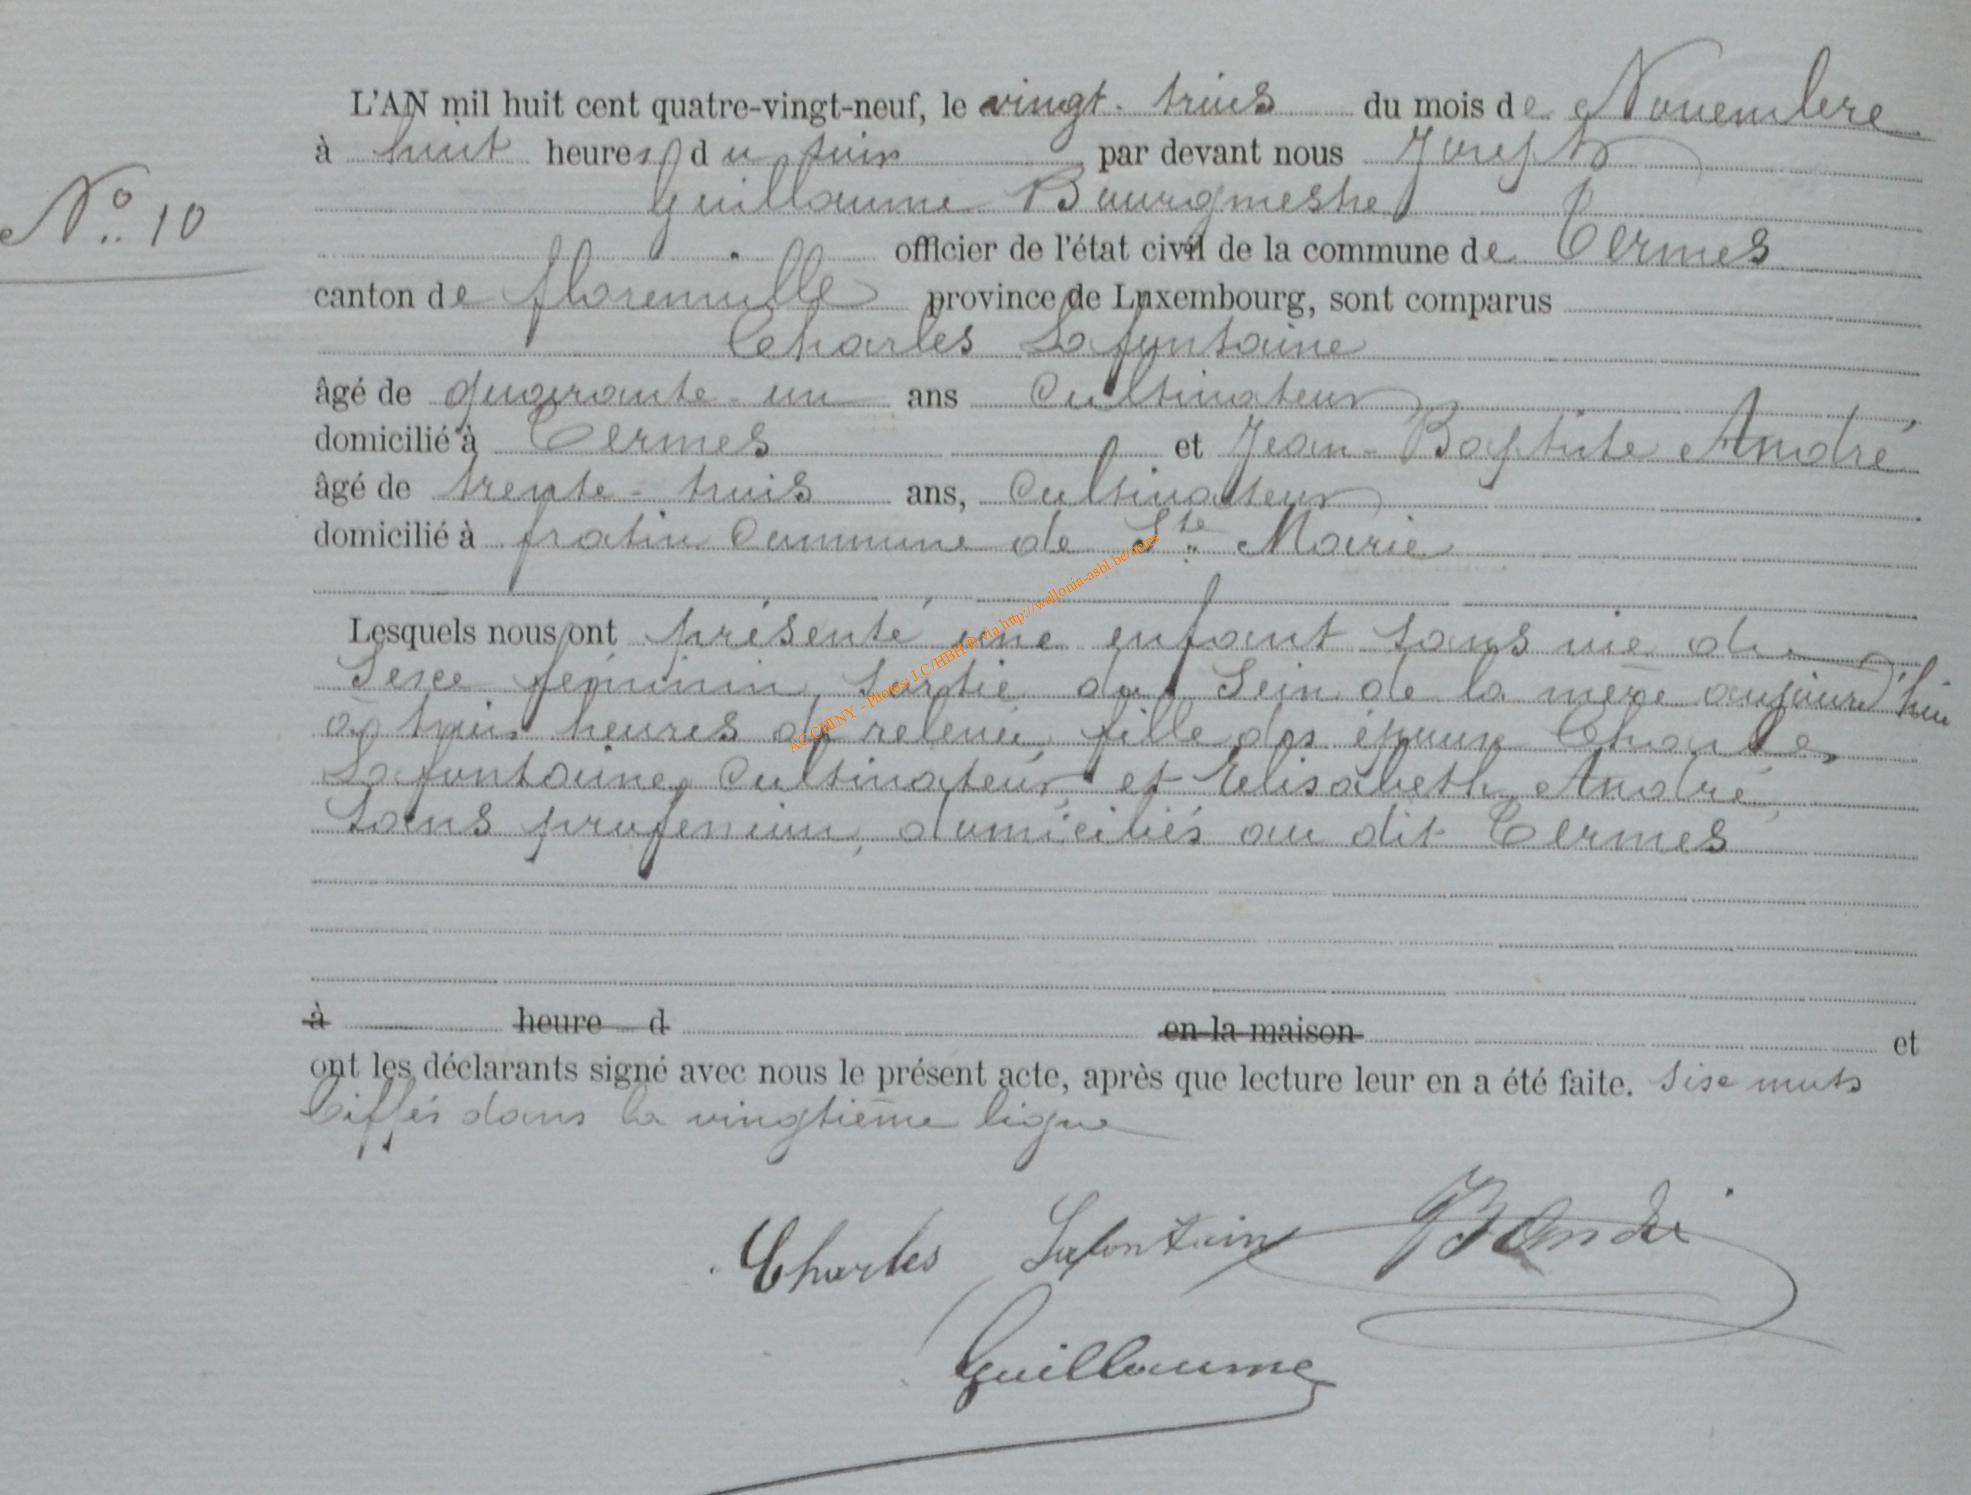 L'AN mil huit cent quatre-vingt-neuf, le vingt-trois du mois de Novembre
à huit heures du soir par devant nous Joseph
N° 10
Guillaume Bourgmestre
officier de l'état civil de la commune de Termes
canton de florenville province de Luxembourg, sont comparus
Charles Lafontaine
âgé de quarante-un ans Cultivateur
domicilié à Termes et Jean-Baptiste André
âgé de trente-trois ans, Cultivateur
domicilié à fratin Commune de Ste Marie
Lesquels nous ont présenté une enfant sans vie du
Sexe féminin, sortie du Sein de la mère aujourd'hui
à trois heures de relevée, fille des époux Charles
Lafontaine, Cultivateur, et Elisabeth André,
sans profession, domiciliés au dit Termes
ACCHINY - Photos J.C/HBH © via http://wallonia-asbl.be/
à heure d en la maison et
ont les déclarants signé avec nous le présent acte, après que lecture leur en a été faite. Six mots
biffés dans la vingtième ligne
Charles Lafontaine JBAndré
Guillaume